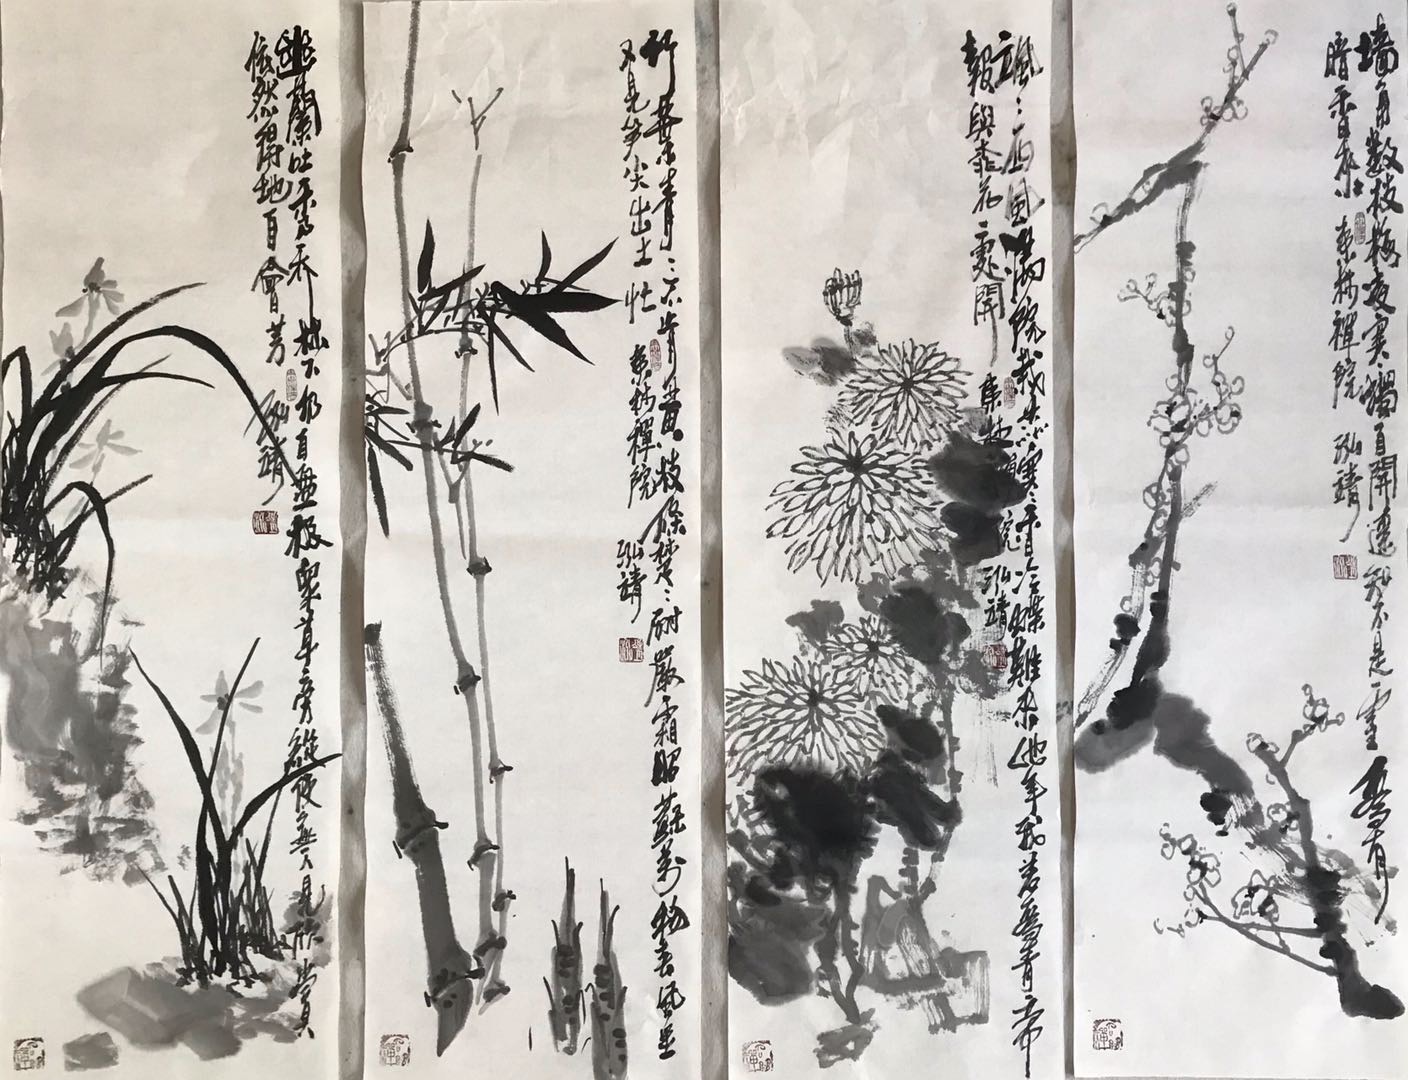 墙角數枝梅凌寒獨自開遥知不是雪為有
暗香來 東林禪院 泓靖
颯颯西風滿院栽蕊寒香冷蝶難來他年我若為青帝
報與桃花一處開 東林禪院 泓靖
竹葉青青不肯黄枝條楚楚耐嚴霜昭蘇萬物春風里
又見笋尖出土忙 東林禪院 泓靖
幽蘭吐秀乔林下仍自盤根衆草旁縱使無人見欣賞
依然得地自會芳 泓靖